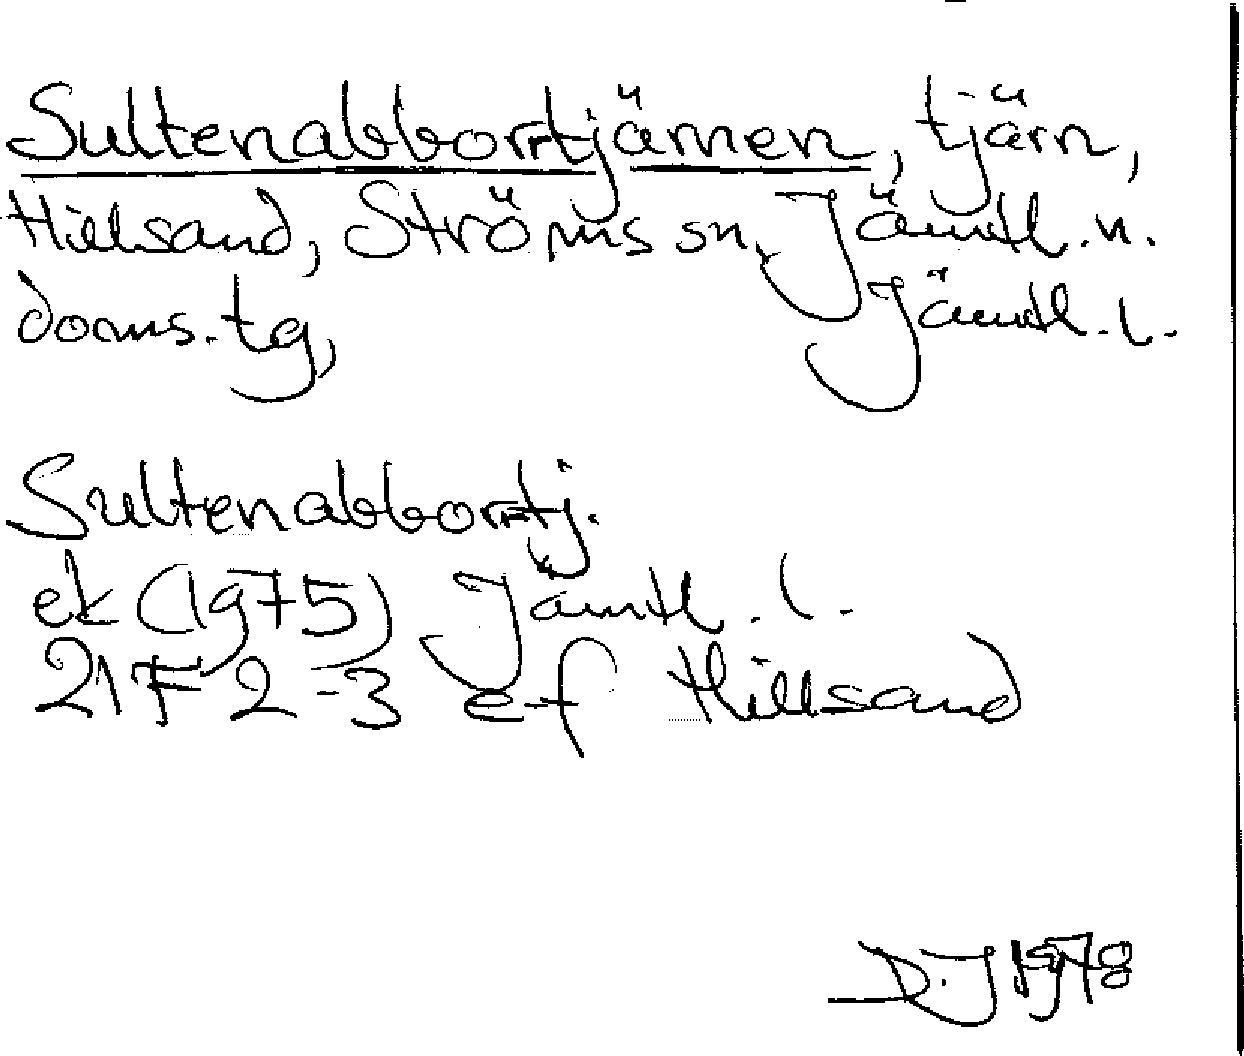 Sultenabborrtjärnen, tjärn,
Hillsand, Ströms sn, Jämtl. n.
doms. tg, Jämtl. l.
Sultenabborrtj.
ek (1975) Jämtl. l.
21F 2-3 e-f Hillsand
D.J 1978